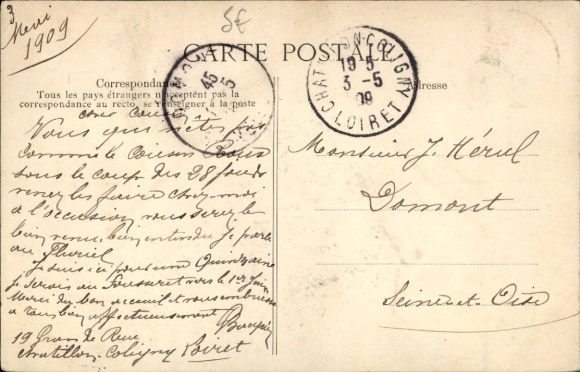 3
Mai
1909
5€
CARTE POSTALE
Correspondance
Tous les pays étrangers n'acceptent pas la
correspondance au recto, se renseigner à la poste
Adresse
CHATILLON-COLIGNY
19 5
3 -5
09
LOIRET
45
5
cher cousin
Vous qui n'êtes pas
comme le cousin
sous le coup des 28 jours
venez les faire chez moi
à l'occasion vous serez le
bien venu, bien entendu je parle
au Pluriel
Je suis ici pour une Quinzaine
je serais au vers le 1er Juin
Merci du bon accueil et vous embrasse
a tous bien affectueusement
19 Grande Rue
Chatillon-Coligny Loiret
Monsieur J. Hérul
Domont
Seine-et-Oise